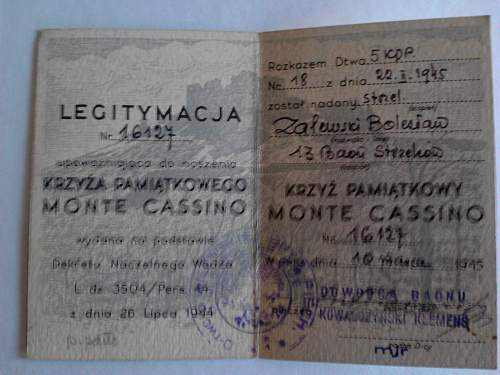 LEGITYMACJA
Nr. 16127
upoważniająca do noszenia
KRZYŻA PAMIĄTKOWEGO
MONTE CASSINO
wydana na podstawie
Dekretu Naczelnego Wodza
L. dz. 3504/Pers. 44
z dnia 26 Lipca 1944
Rozkazem Dtwa 5 KDP.
Nr. 18 z dnia 22.II.1945
został nadany strzel.
Zalewski Bolesław
13 Baon Strzelców
KRZYŻ PAMIĄTKOWY
MONTE CASSINO
Nr. 16127
W polu dnia 10 marca 1945
DOWÓDCA BAONU
KOWALCZYŃSKI KLEMENS
mjr